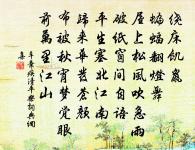 繞床飢鼠
蝙蝠翻燈舞
屋上松風吹急雨
破紙窗間自語
平生塞北江南
歸來華髮蒼顏
布被秋宵夢覺眼
前萬里江山
辛棄疾清平樂詞